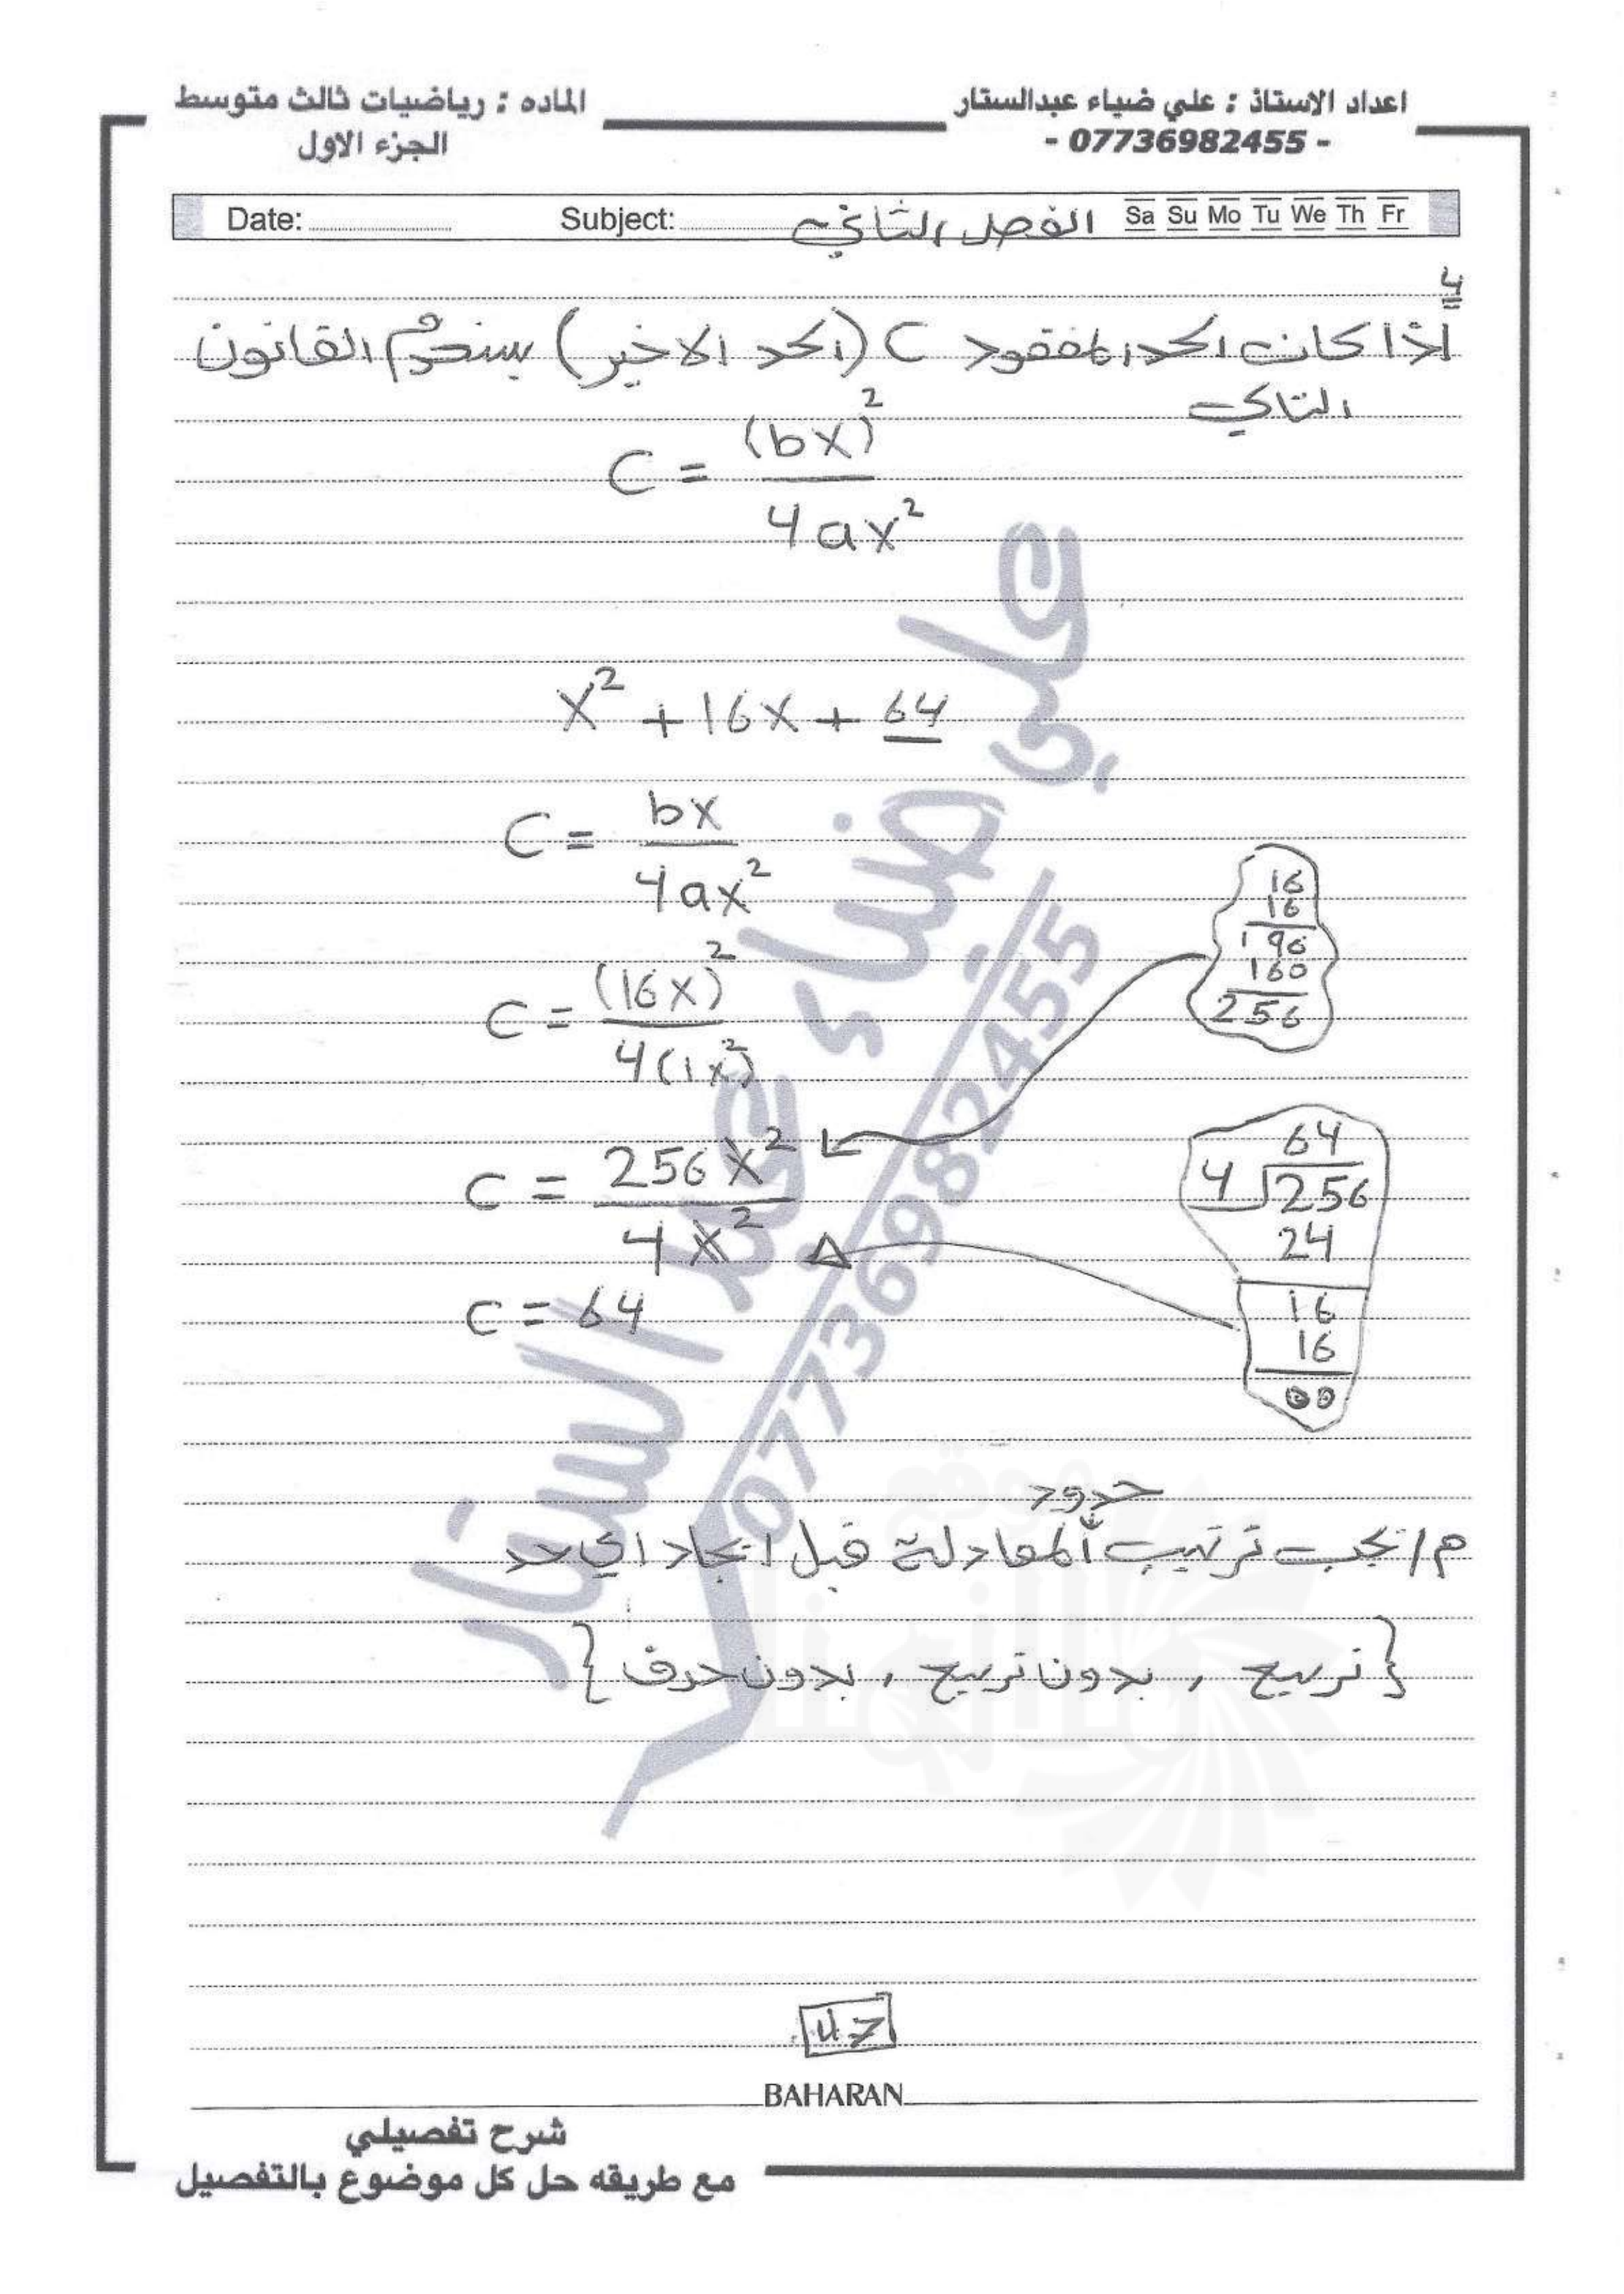 اعداد الاستاذ : علي ضياء عبدالستار
- 07736982455 -
الماده : رياضيات ثالث متوسط
الجزء الاول
Date: Subject: الفصل الثاني Sa Su Mo Tu We Th Fr
4
اذا كان الحد المفقود C (الحد الاخير) يستخدم القانون
التالي
C = (bx)² / 4ax²
x² + 16x + 64
C = bx / 4ax²
C = (16x)² / 4(1x²)
16
16
196
160
256
C = 256x² / 4x²
C = 64
64
4 256
24
16
16
00
حدود
م/ يجب ترتيب المعادلة قبل ايجاد اي حد
{تربيع , بدون تربيع , بدون حرف}
علي ضياء عبد الستار
07736982455
47
BAHARAN
شرح تفصيلي
مع طريقه حل كل موضوع بالتفصيل